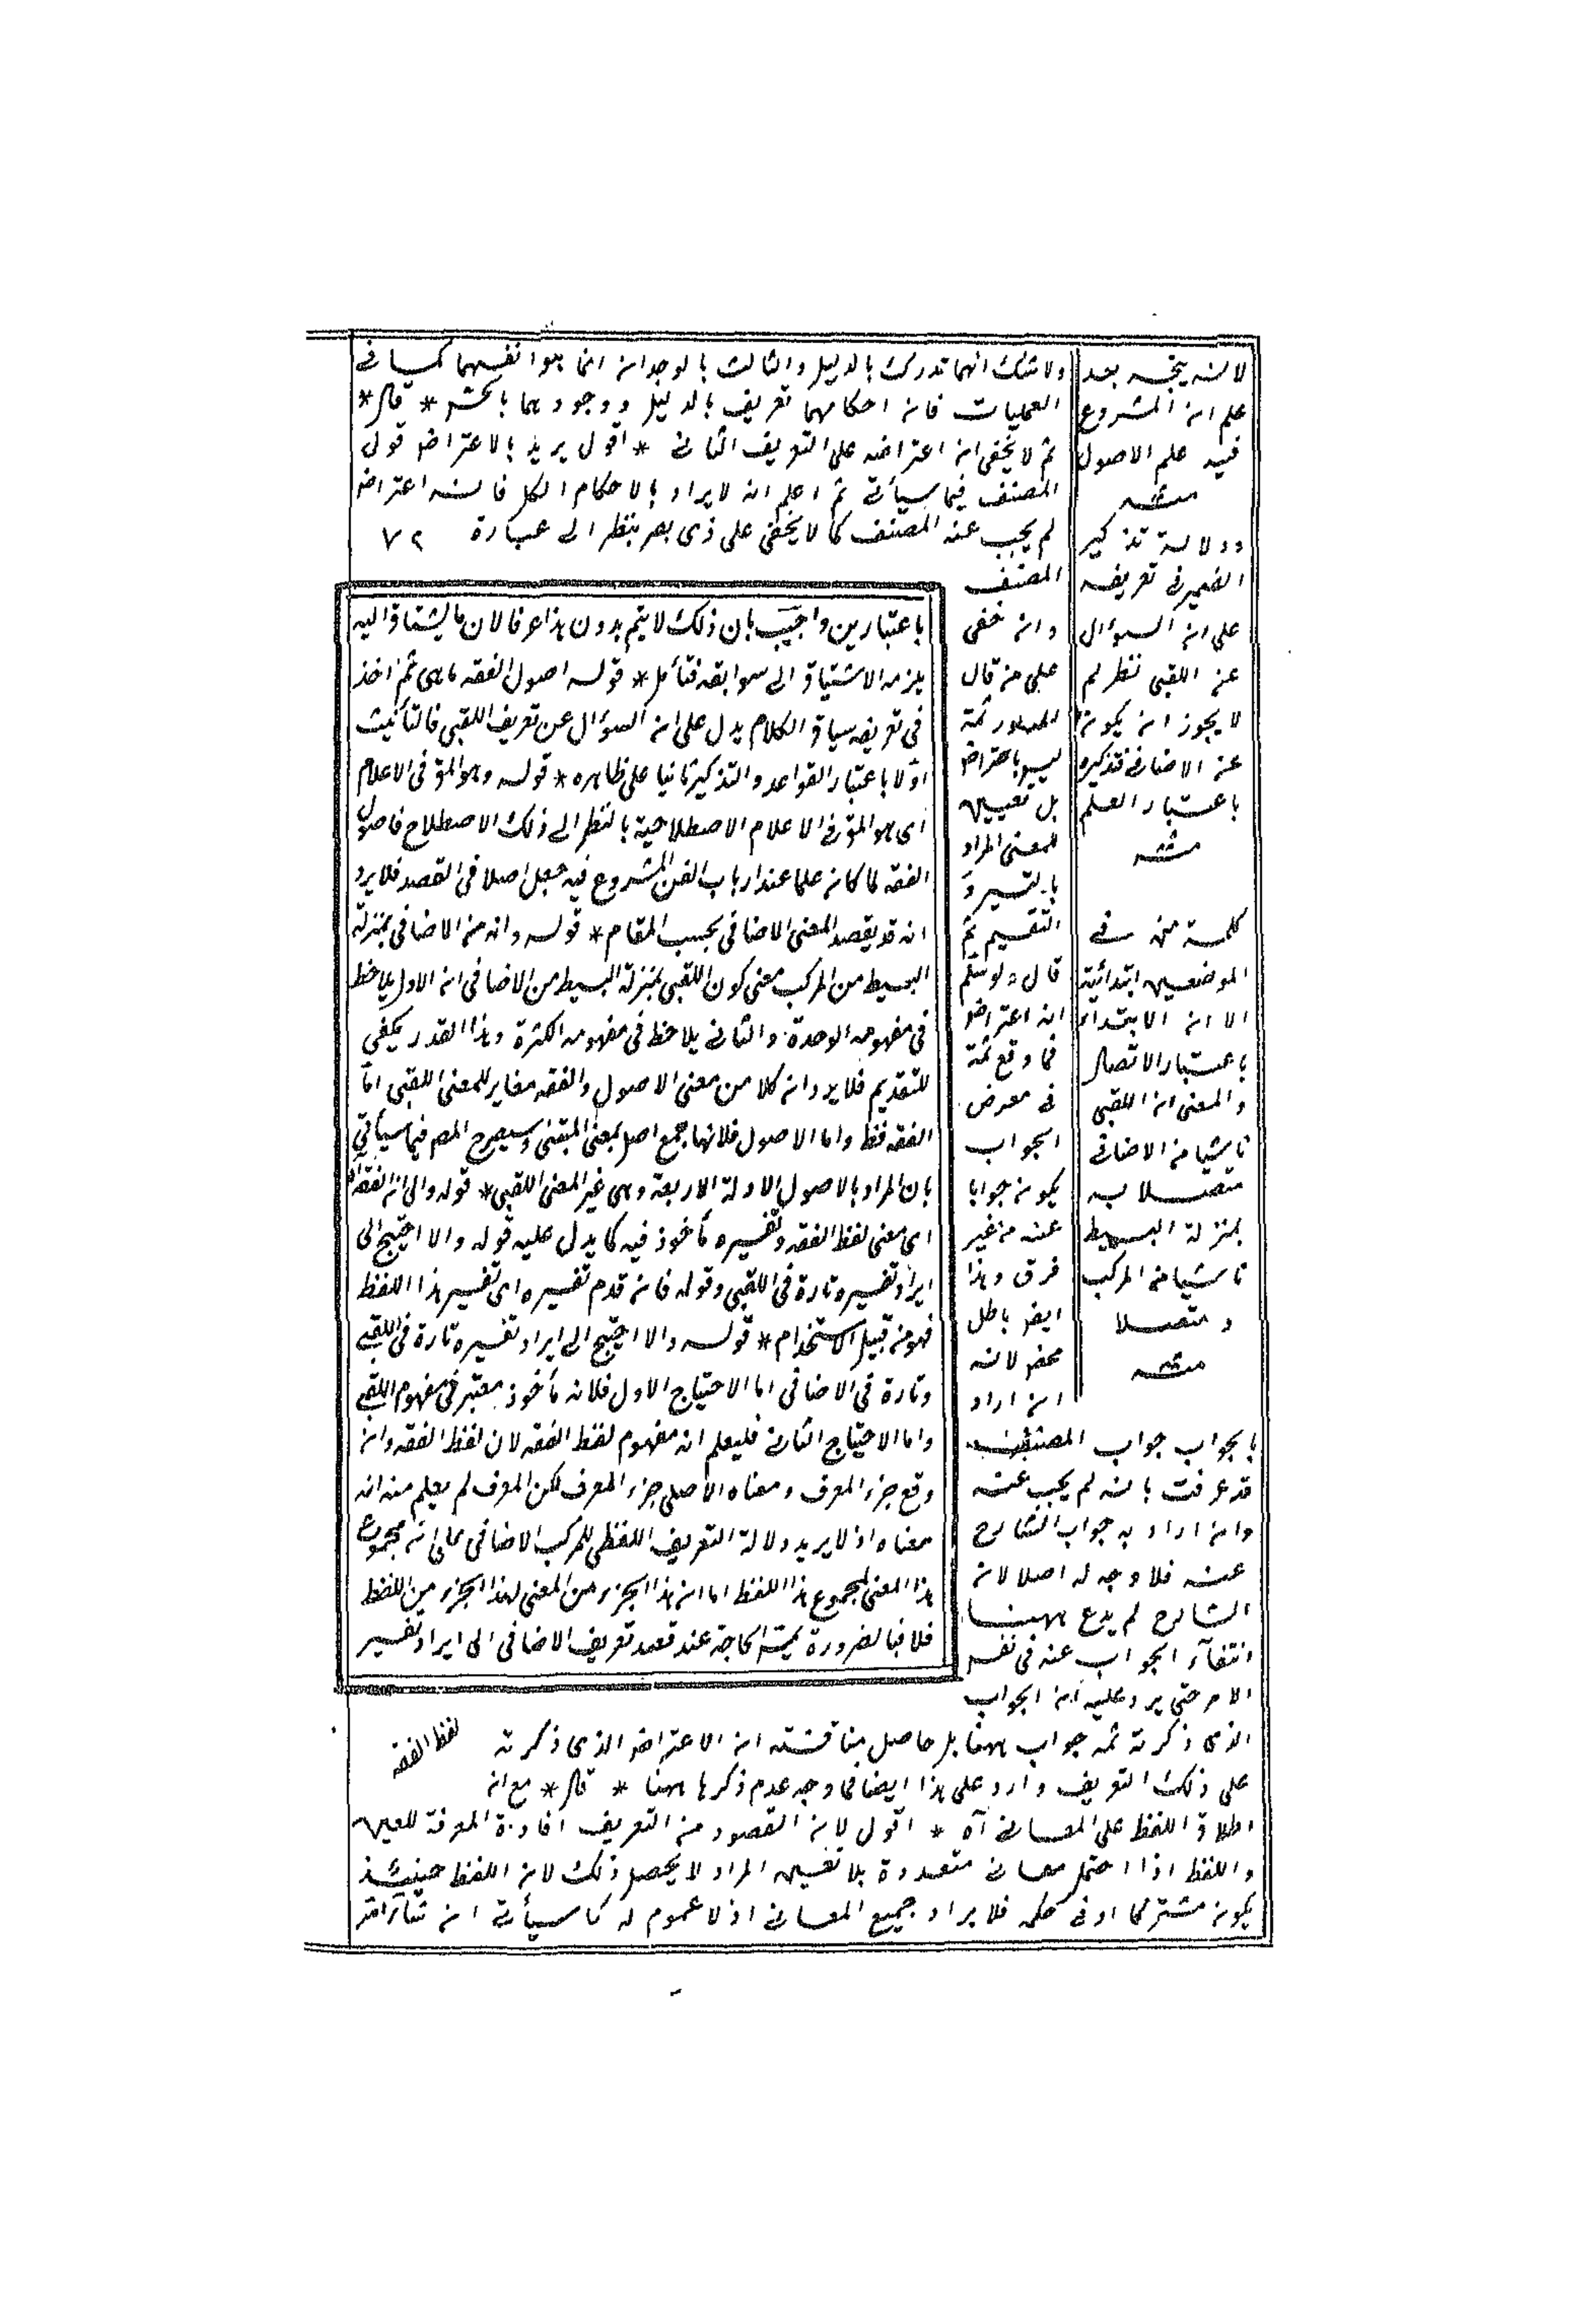 ولا شك انهما تدرك بالدليل والثالث بالوجدان انما هو انفسهما كسائر
العمليات فان احكامهما تعريف بالدليل ووجودهما بالحس * قال *
ثم لا يخفى ان اعتراضه على التعريف الثاني * اقول يريد بالاعتراض قول
المصنف فيما سيأتي ثم اعلم انه لا يراد بالاحكام الكل فانه اعتراض
لم يجب عنه المصنف كما لا يخفى على ذى بصر ينظر الى عبارة ٧٢
المصنف
وان خفى
على من قال
المصادر ثمة
ليس باعتراض
بل تعيين
للمعنى المراد
بالتفسير و
التقسيم ثم
قال ولو سلم
انه اعتراض
فما وقع ثمة
فى معرض
الجواب
يكون جوابا
عنه من غير
فرق وهذا
ايض باطل
محض لانه
ان اراد
بالجواب جواب المصنف
قد عرفت بانه لم يجب عنه
وان اراد به جواب الشارح
عنه فلا وجه له اصلا لان
الشارح لم يدع ههنا
انتفاء الجواب عنه فى نفس
الامر حتى يرد عليه ان الجواب
الذى ذكرته ثمه جواب ههنا بل حاصل مناقشته ان الاعتراض الذى ذكرته
على ذلك التعريف وارد على هذا ايضا فما وجه عدم ذكرها ههنا * قال * مع ان
اطلاق اللفظ على المعانى آه * اقول لان المقصود من التعريف افادة المعرفة للعين
واللفظ اذا احتمل معانى متعددة بلا تعيين المراد لا يحصل ذلك لان اللفظ حينئذ
يكون مشتركا او فى حكمه فلا يراد جميع المعانى اذ لا عموم له كما سيأتى ان شاء الله
باعتبارين واجيب بان ذلك لا يتم بدون هذا عرفا لان ما يشتاق اليه
يلزمه الاشتياق الى سوابقه فتأمل * قوله اصول الفقه ما هى ثم اخذ
فى تعريفه سياق الكلام يدل على ان السؤال عن تعريف اللقبى فالتأنيث
اولا باعتبار القواعد والتذكير ثانيا على ظاهره * قوله وهو المق فى الاعلام
اى هو المق فى الاعلام الاصطلاحية بالنظر الى ذلك الاصطلاح فاصول
الفقه لما كان علما عند ارباب الفن المشروع فيه جعل اصلا فى القصد فلا يرد
انه قد يقصد المعنى الاضافى بحسب المقام * قوله وانه من الاضافى بمنزلة
البسيط من المركب معنى كون اللقبى بمنزلة البسيط من الاضافى ان الاول يلاحظ
فى مفهومه الوحدة والثانى يلاحظ فى مفهومه الكثرة وهذا القدر يكفى
للتقديم فلا يرد ان كلا من معنى الاصول والفقه مغاير للمعنى اللقبى اما
الفقه فظ واما الاصول فلانها جمع اصل بمعنى المبتنى وسيصرح المص فيما سيأتى
بان المراد بالاصول الادلة الاربعة وهى غير المعنى اللقبى * قوله والى ان الفقه
اى معنى لفظ الفقه وتفسيره مأخوذ فيه كما يدل عليه قوله والا احتيج الى
ايراد تفسيره تارة فى اللقبى وقوله فان قدم تفسيره اى تفسير هذا اللفظ
فهو من قبيل الاستخدام * قوله والا احتيج الى ايراد تفسيره تارة فى اللقبى
وتارة فى الاضافى اما الاحتياج الاول فلانه مأخوذ معتبر فى مفهوم اللقبى
واما الاحتياج الثانى فليعلم انه مفهوم لفظ الفقه لان لفظ الفقه وان
وقع جزء المعرف ومعناه الاصلى جزء المعرف لكن المعرف لم يعلم منه انه
معناه اذ لا يريد دلالة التعريف اللفظى للمركب الاضافى على ان مجموع
هذا المعنى لمجموع هذا اللفظ اما ان هذا الجزء من المعنى لهذا الجزء من اللفظ
فلا فبالضرورة يمس الحاجة عند قصد تعريف الاضافى الى ايراد تفسير
لفظ الفقه
لانه يتجه بعد
علم ان المشروع
فيه علم الاصول
منه
ودلالة تذكير
الضمير فى تعريفه
على ان السؤال
عن اللقبى نظر لم
لا يجوز ان يكون
عن الاضافى فتذكيره
باعتبار العلم
منه
كلمة من فى
الموضعين ابتدائية
الا ان الابتداء
باعتبار الاتصال
والمعنى ان اللقبى
ناشيا من الاضافى
متصلا به
بمنزلة البسيط
ناشيا من المركب
ومتصلا
منه